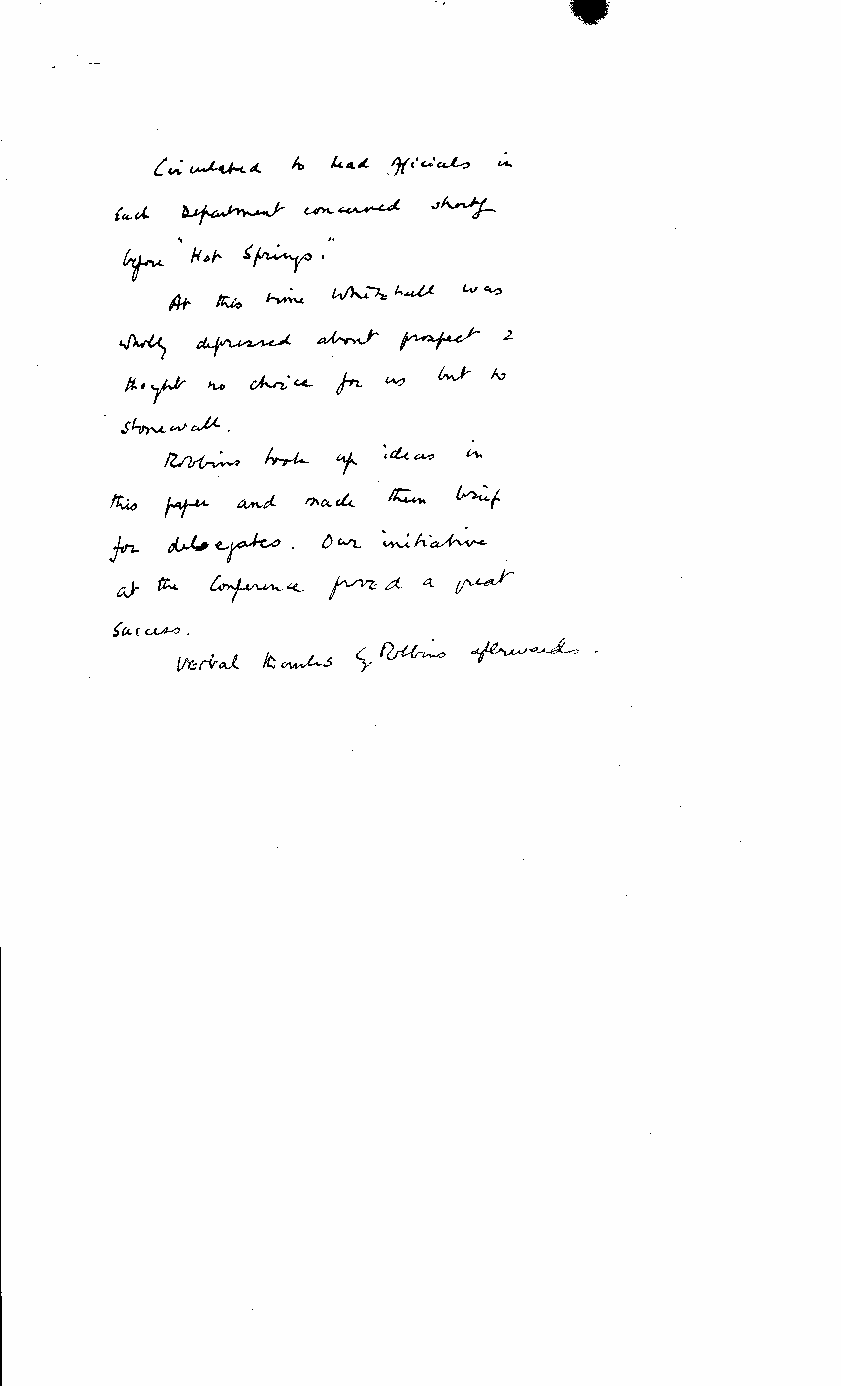 Circulated to head officials in
Each Department concerned shortly
before "Hot Springs."
At this time Whitehall was
wholly depressed about prospect &
thought no choice for us but to
stonewall.
Robbins took up ideas in
this paper and made them brief
for delegates. Our initiative
at the Conference proved a great
success.
Verbal thanks by Robbins afterwards.